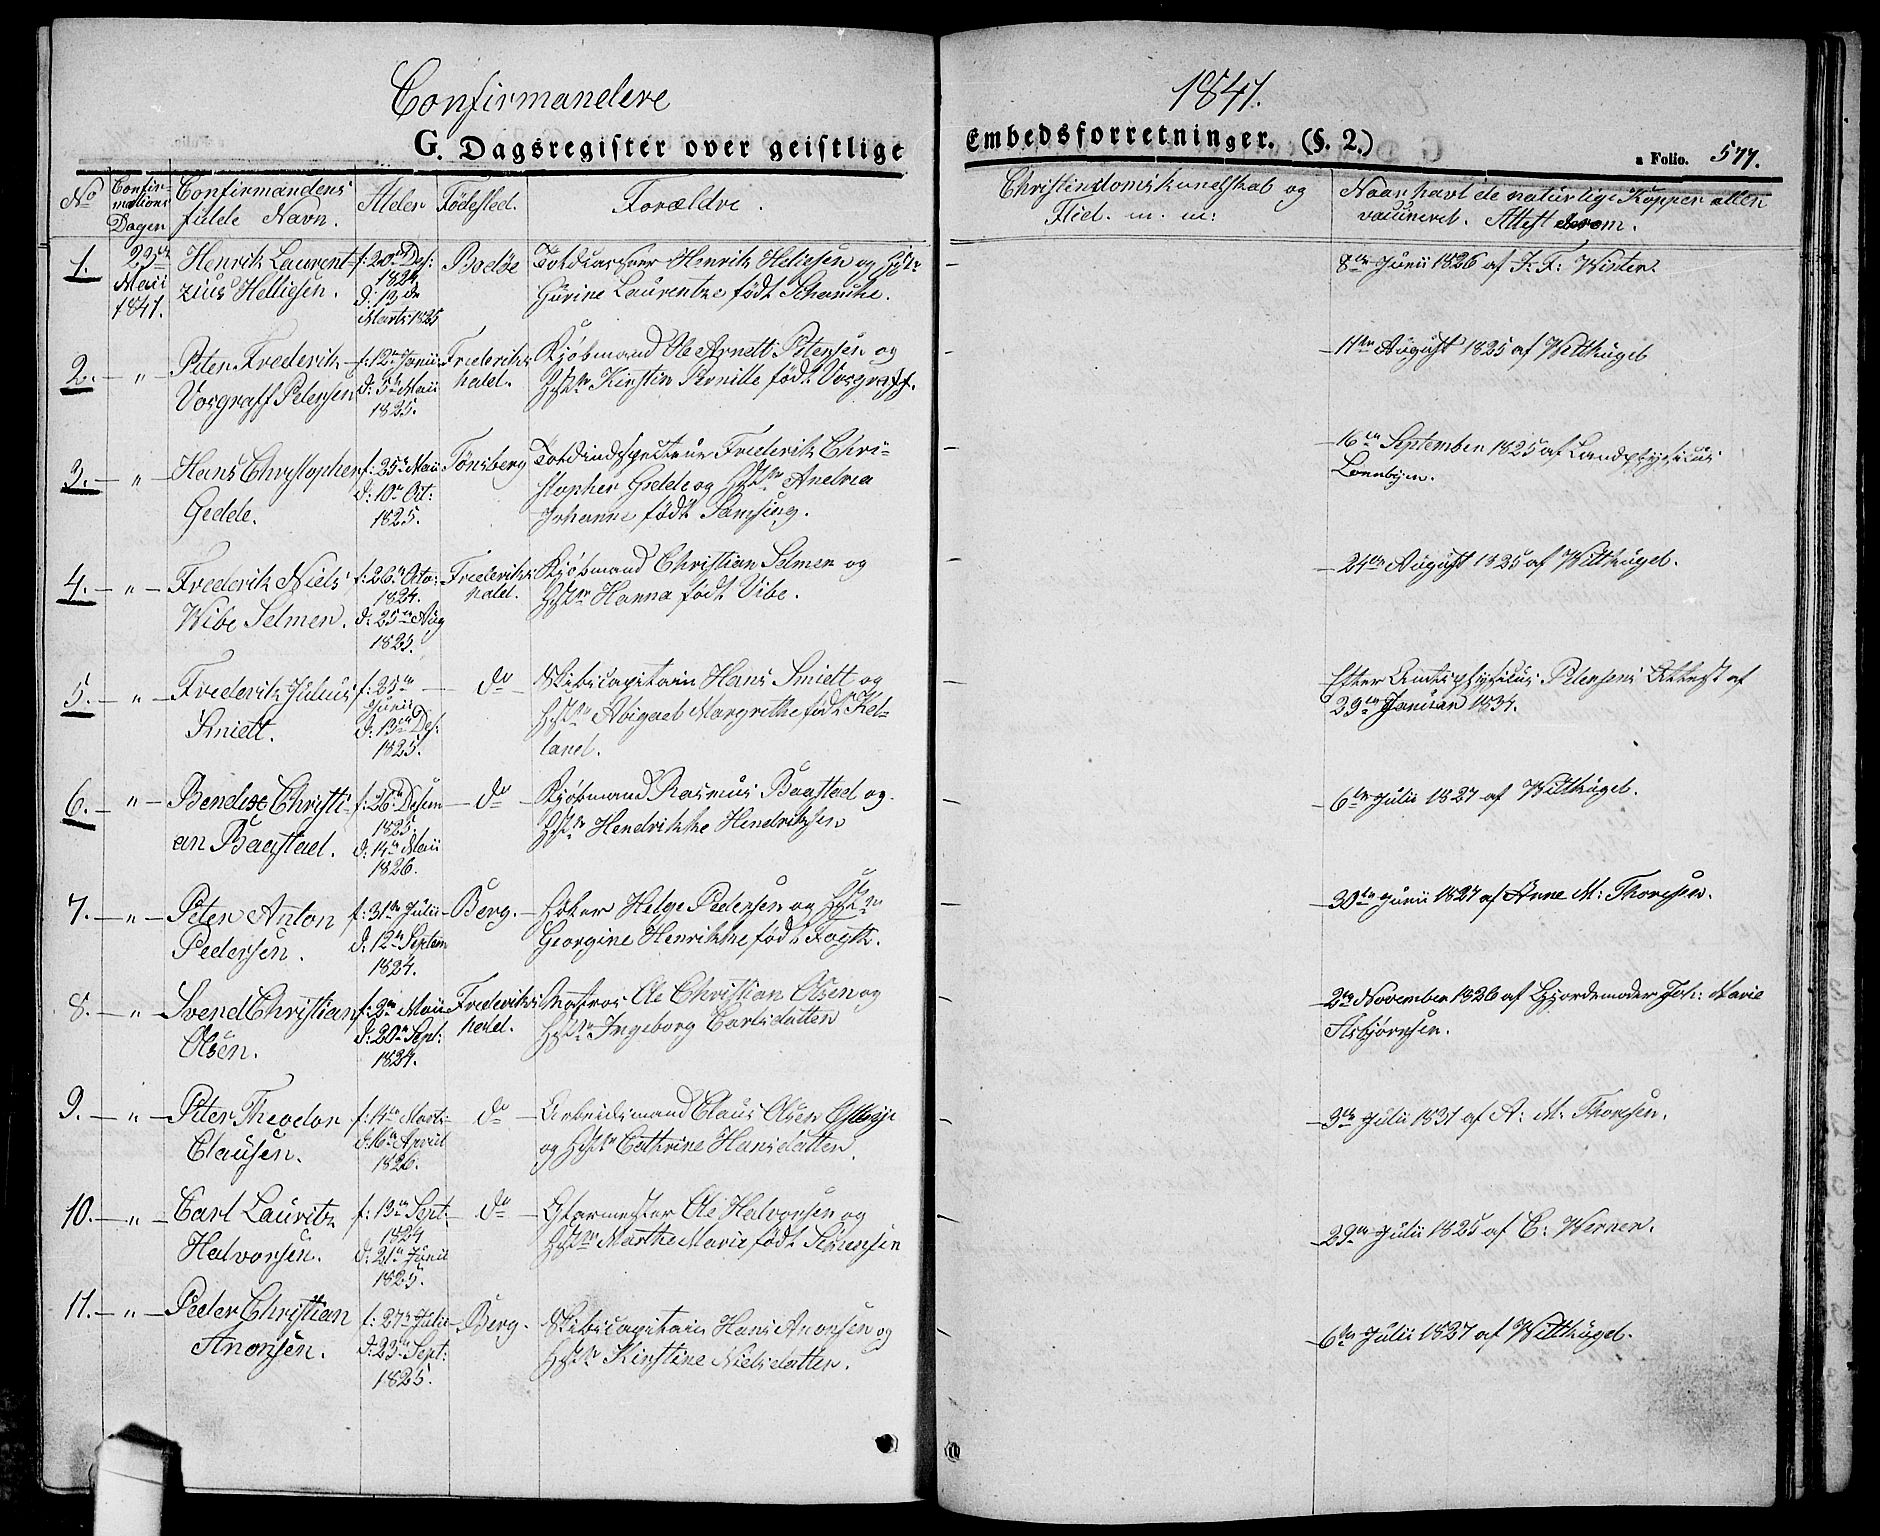 Confirmandere 1841.
G. Dagsregister over geistlige Embedsforretninger. (§. 2.) a Folio. 577.
No
Confir-
mations
Dagen
Confirmandens
fulde Navn.
Alder
Fødested.
Forældre.
Christendomskundskab og
Flid. m. m:
Naar havt de naturlige Kopper eller
vaccineret. Attest derom.
1.
23de
Maii
1841.
Henrik Laurent-
zius Helliesen.
f: 20de Des:
1824
d: 13de
Marts 1825
Bodøe
Toldcasserer Henrik Heliesen og Hstr
Gurine Laurentze født Schanche.
8de Junii 1826 af J. F: Wister.
2. — " —
Peter Frederik
Vosgraff Petersen
f: 12te Janii
d: 5te Maii
1825.
Frederiks
hald.
Kjøbmand Ole Arnett Petersen og
Hstr Kirstin Pernille født Vosgraff.
11te August 1825 af Witthügel
3. — " —
Hans Christopher
Gedde.
f: 25de Maii
d: 10de Oct:
1825.
Tønsberg
Toldinspecteur Frederik Chri-
stopher Gedde og Hstr Andrea
Johanne født Samsing.
16de September 1825 af Landphysicus
4. — " —
Frederik Niels
Wibe Selmer.
f: 26de Octo:
1824.
d: 25de Aug
1825.
Frederiks
hald.
Kjøbmand Christian Selmer og
Hstr Hanna født Vibe.
24de August 1825 af Witthügel.
5. " —
Frederik Julius
Smidt.
f: 25de
Junii
d: 13de Des:
1825.
do
Skibscapitain Hans Smidt og
Hstr Abigael Margrethe født Kel-
land.
Efter Amtsphysicus Petersens Attest af
29de Januar 1834.
6. — " —
Bendix Christi-
an Baastad.
f: 26de Desem
1825.
d: 14de Maii
1826.
do
Kjøbmand Rasmus Baastad og
Hstr Hendrikke Hendriksen
6te Julii 1827 af Witthügel.
7. — " —
Peter Anton
Pedersen.
f: 31te Julii
d: 12te Septem
1824.
Berg.
Høker Helge Pedersen og Hstr
Georgine Henrikke født Fogth.
30te Junii 1827 af Anne M: Thoresen.
8. — "
Svend Christian
Olsen.
f: 2de Maii
d: 20de Sept:
1824.
Frederiks
hald.
Matros Ole Christian Olsen og
Hstr Ingeborg Carlsdatter
2de November 1826 af Gjordemoder Joh: Marie
Asbjørnsen.
9. — " —
Peter Theodor
Clausen.
f: 14de Marts
d: 16de April
1826.
do
Arbeidsmand Claus Olsen
og Hstr Cathrine Hansdatter.
3de Julii 1831 af A: M: Thoresen.
10. — " —
Carl Lauritz
Halvorsen.
f: 13de Sept.
1824
d: 21de Junii
1825.
do
Glarmester Ole Halvorsen og
Hstr Marthe Marie født Simensen
29de Julii 1825 af C: Werner.
11. — " —
Peder Christian
Anonsen.
f: 27de Julii
d: 23de Sept:
1825.
Berg.
Skibscapitain Hans Anonsen og
Hstr Kirstine Nielsdatter.
6te Julii 1827 af Witthügel.